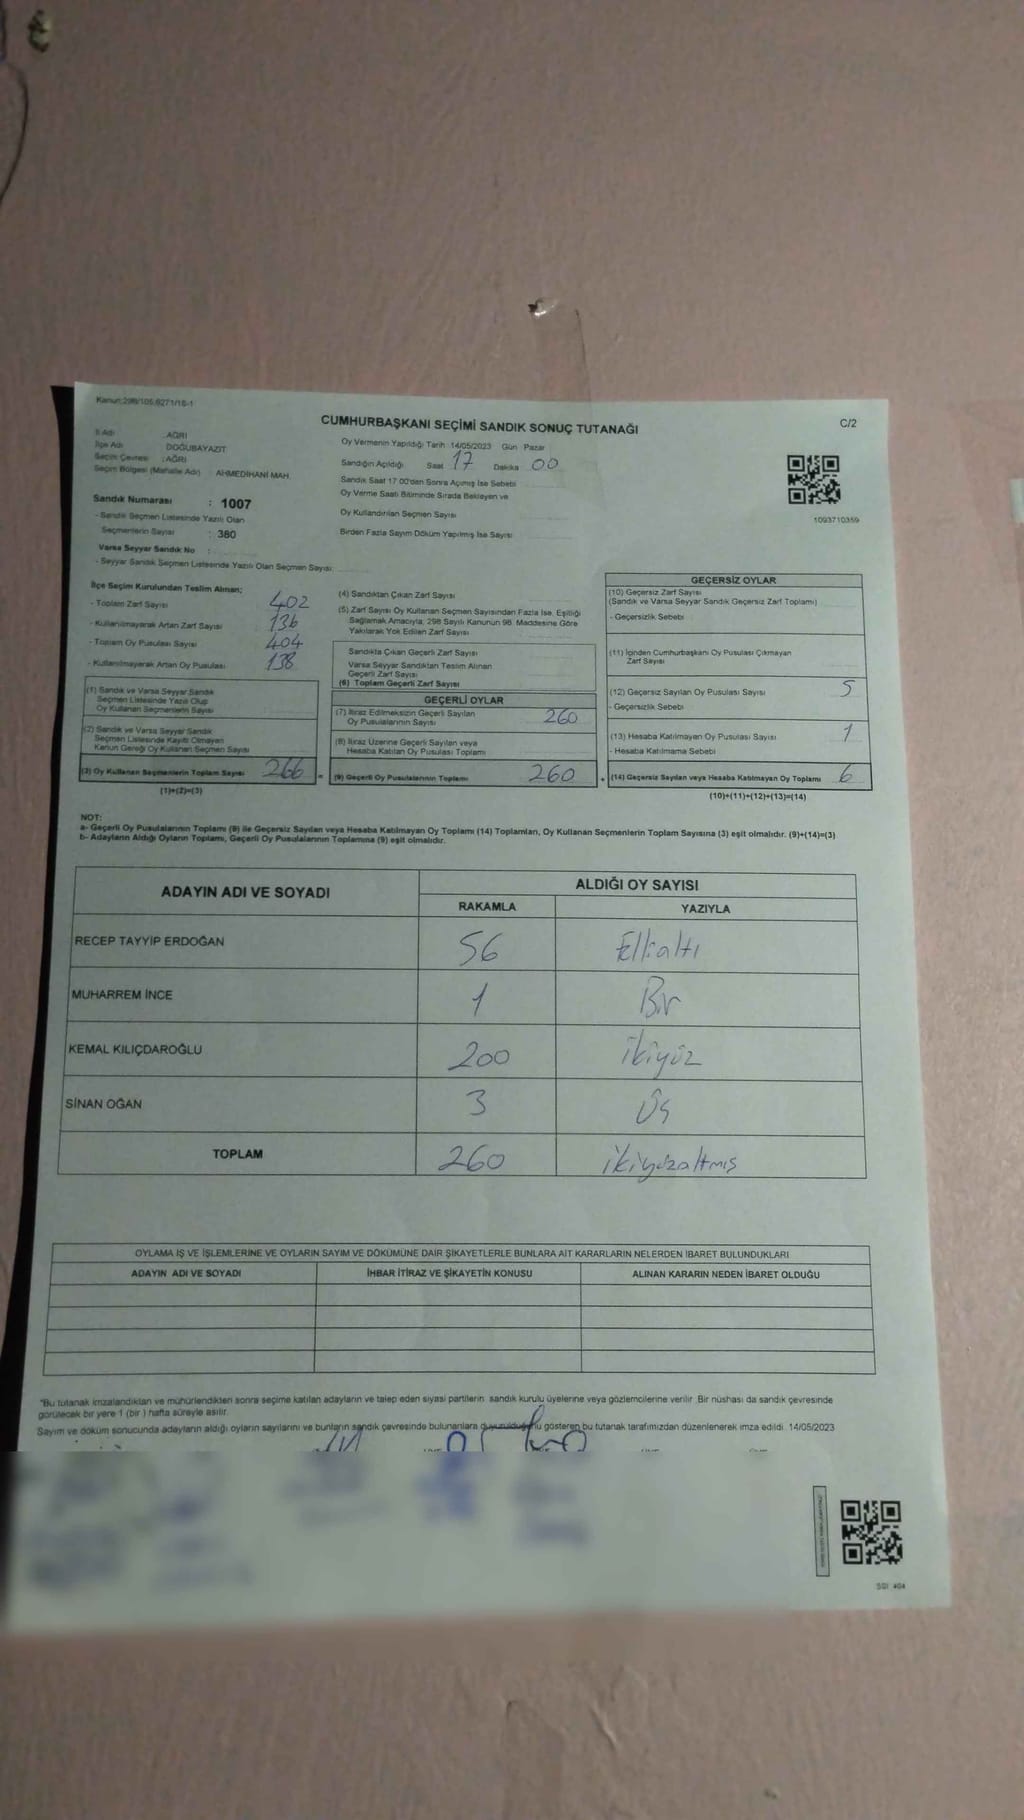 Kanun:298/105,6271/18-1
CUMHURBAŞKANI SEÇİMİ SANDIK SONUÇ TUTANAĞI
C/2
İl Adı : AĞRI
İlçe Adı : DOĞUBAYAZIT
Seçim Çevresi : AĞRI
Seçim Bölgesi (Mahalle Adı) AHMEDİHANİ MAH.
Sandık Numarası : 1007
- Sandık Seçmen Listesinde Yazılı Olan
Seçmenlerin Sayısı : 380
Varsa Seyyar Sandık No :
- Seyyar Sandık Seçmen Listesinde Yazılı Olan Seçmen Sayısı:
Oy Vermenin Yapıldığı Tarih 14/05/2023 Gün Pazar
Sandığın Açıldığı Saat 17 Dakika 00
Sandık Saat 17.00'den Sonra Açılmış İse Sebebi
Oy Verme Saati Bitiminde Sırada Bekleyen ve
Oy Kullandırılan Seçmen Sayısı
Birden Fazla Sayım Döküm Yapılmış İse Sayısı
1093710359
İlçe Seçim Kurulundan Teslim Alınan;
- Toplam Zarf Sayısı 402
- Kullanılmayarak Artan Zarf Sayısı 136
- Toplam Oy Pusulası Sayısı 404
- Kullanılmayarak Artan Oy Pusulası 138
(1) Sandık ve Varsa Seyyar Sandık
Seçmen Listesinde Yazılı Olup
Oy Kullanan Seçmenlerin Sayısı
(2) Sandık ve Varsa Seyyar Sandık
Seçmen Listesinde Kayıtlı Olmayan
Kanun Gereği Oy Kullanan Seçmen Sayısı
(3) Oy Kullanan Seçmenlerin Toplam Sayısı 266 =
(1)+(2)=(3)
(4) Sandıktan Çıkan Zarf Sayısı
(5) Zarf Sayısı Oy Kullanan Seçmen Sayısından Fazla İse, Eşitliği
Sağlamak Amacıyla, 298 Sayılı Kanunun 98. Maddesine Göre
Yakılarak Yok Edilen Zarf Sayısı
Sandıkta Çıkan Geçerli Zarf Sayısı
Varsa Seyyar Sandıktan Teslim Alınan
Geçerli Zarf Sayısı
(6) Toplam Geçerli Zarf Sayısı
GEÇERLİ OYLAR
(7) İtiraz Edilmeksizin Geçerli Sayılan
Oy Pusulalarının Sayısı 260
(8) İtiraz Üzerine Geçerli Sayılan veya
Hesaba Katılan Oy Pusulası Toplamı
(9) Geçerli Oy Pusulalarının Toplamı 260 +
GEÇERSİZ OYLAR
(10) Geçersiz Zarf Sayısı
(Sandık ve Varsa Seyyar Sandık Geçersiz Zarf Toplamı)
- Geçersizlik Sebebi
(11) İçinden Cumhurbaşkanı Oy Pusulası Çıkmayan
Zarf Sayısı
(12) Geçersiz Sayılan Oy Pusulası Sayısı 5
- Geçersizlik Sebebi
(13) Hesaba Katılmayan Oy Pusulası Sayısı 1
- Hesaba Katılmama Sebebi
(14) Geçersiz Sayılan veya Hesaba Katılmayan Oy Toplamı 6
(10)+(11)+(12)+(13)=(14)
NOT:
a- Geçerli Oy Pusulalarının Toplamı (9) ile Geçersiz Sayılan veya Hesaba Katılmayan Oy Toplamı (14) Toplamları, Oy Kullanan Seçmenlerin Toplam Sayısına (3) eşit olmalıdır. (9)+(14)=(3)
b- Adayların Aldığı Oyların Toplamı, Geçerli Oy Pusulalarının Toplamına (9) eşit olmalıdır.
ADAYIN ADI VE SOYADI ALDIĞI OY SAYISI
RAKAMLA YAZIYLA
RECEP TAYYİP ERDOĞAN 56 Ellialtı
MUHARREM İNCE 1 Bir
KEMAL KILIÇDAROĞLU 200 ikiyüz
SİNAN OĞAN 3 Üç
TOPLAM 260 ikiyüzaltmış
OYLAMA İŞ VE İŞLEMLERİNE VE OYLARIN SAYIM VE DÖKÜMÜNE DAİR ŞİKAYETLERLE BUNLARA AİT KARARLARIN NELERDEN İBARET BULUNDUKLARI
ADAYIN ADI VE SOYADI İHBAR İTİRAZ VE ŞİKAYETİN KONUSU ALINAN KARARIN NEDEN İBARET OLDUĞU
"Bu tutanak imzalandıktan ve mühürlendikten sonra seçime katılan adayların ve talep eden siyasi partilerin sandık kurulu üyelerine veya gözlemcilerine verilir. Bir nüshası da sandık çevresinde
görülecek bir yere 1 (bir ) hafta süreyle asılır.
Sayım ve döküm sonucunda adayların aldığı oyların sayılarını ve bunların sandık çevresinde bulunanlara duyurulduğunu gösteren bu tutanak tarafımızdan düzenlenerek imza edildi. 14/05/2023
SGI 404